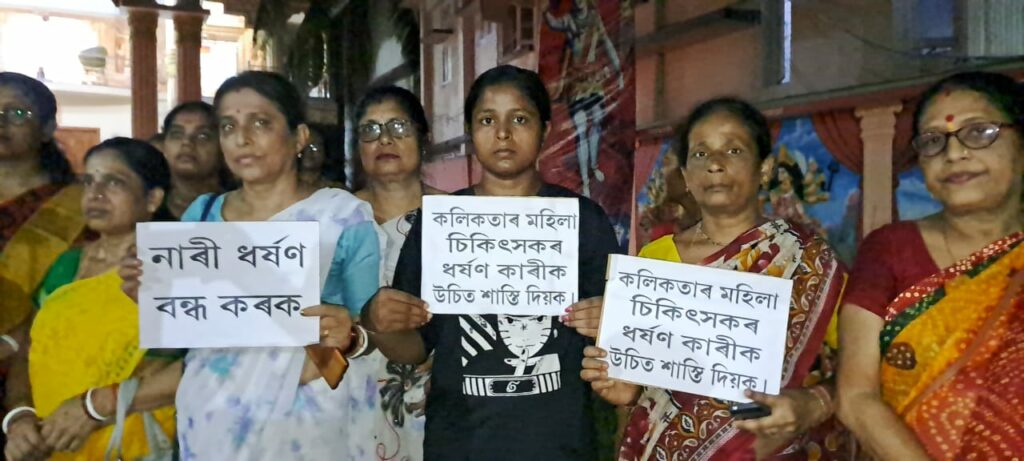 নাৰী ধৰ্ষণ
বন্ধ কৰক
কলিকতাৰ মহিলা
চিকিৎসকৰ
ধৰ্ষণ কাৰীক
উচিত শাস্তি দিয়ক।
কলিকতাৰ মহিলা
চিকিৎসকৰ
ধৰ্ষণ কাৰীক
উচিত শাস্তি দিয়ক।